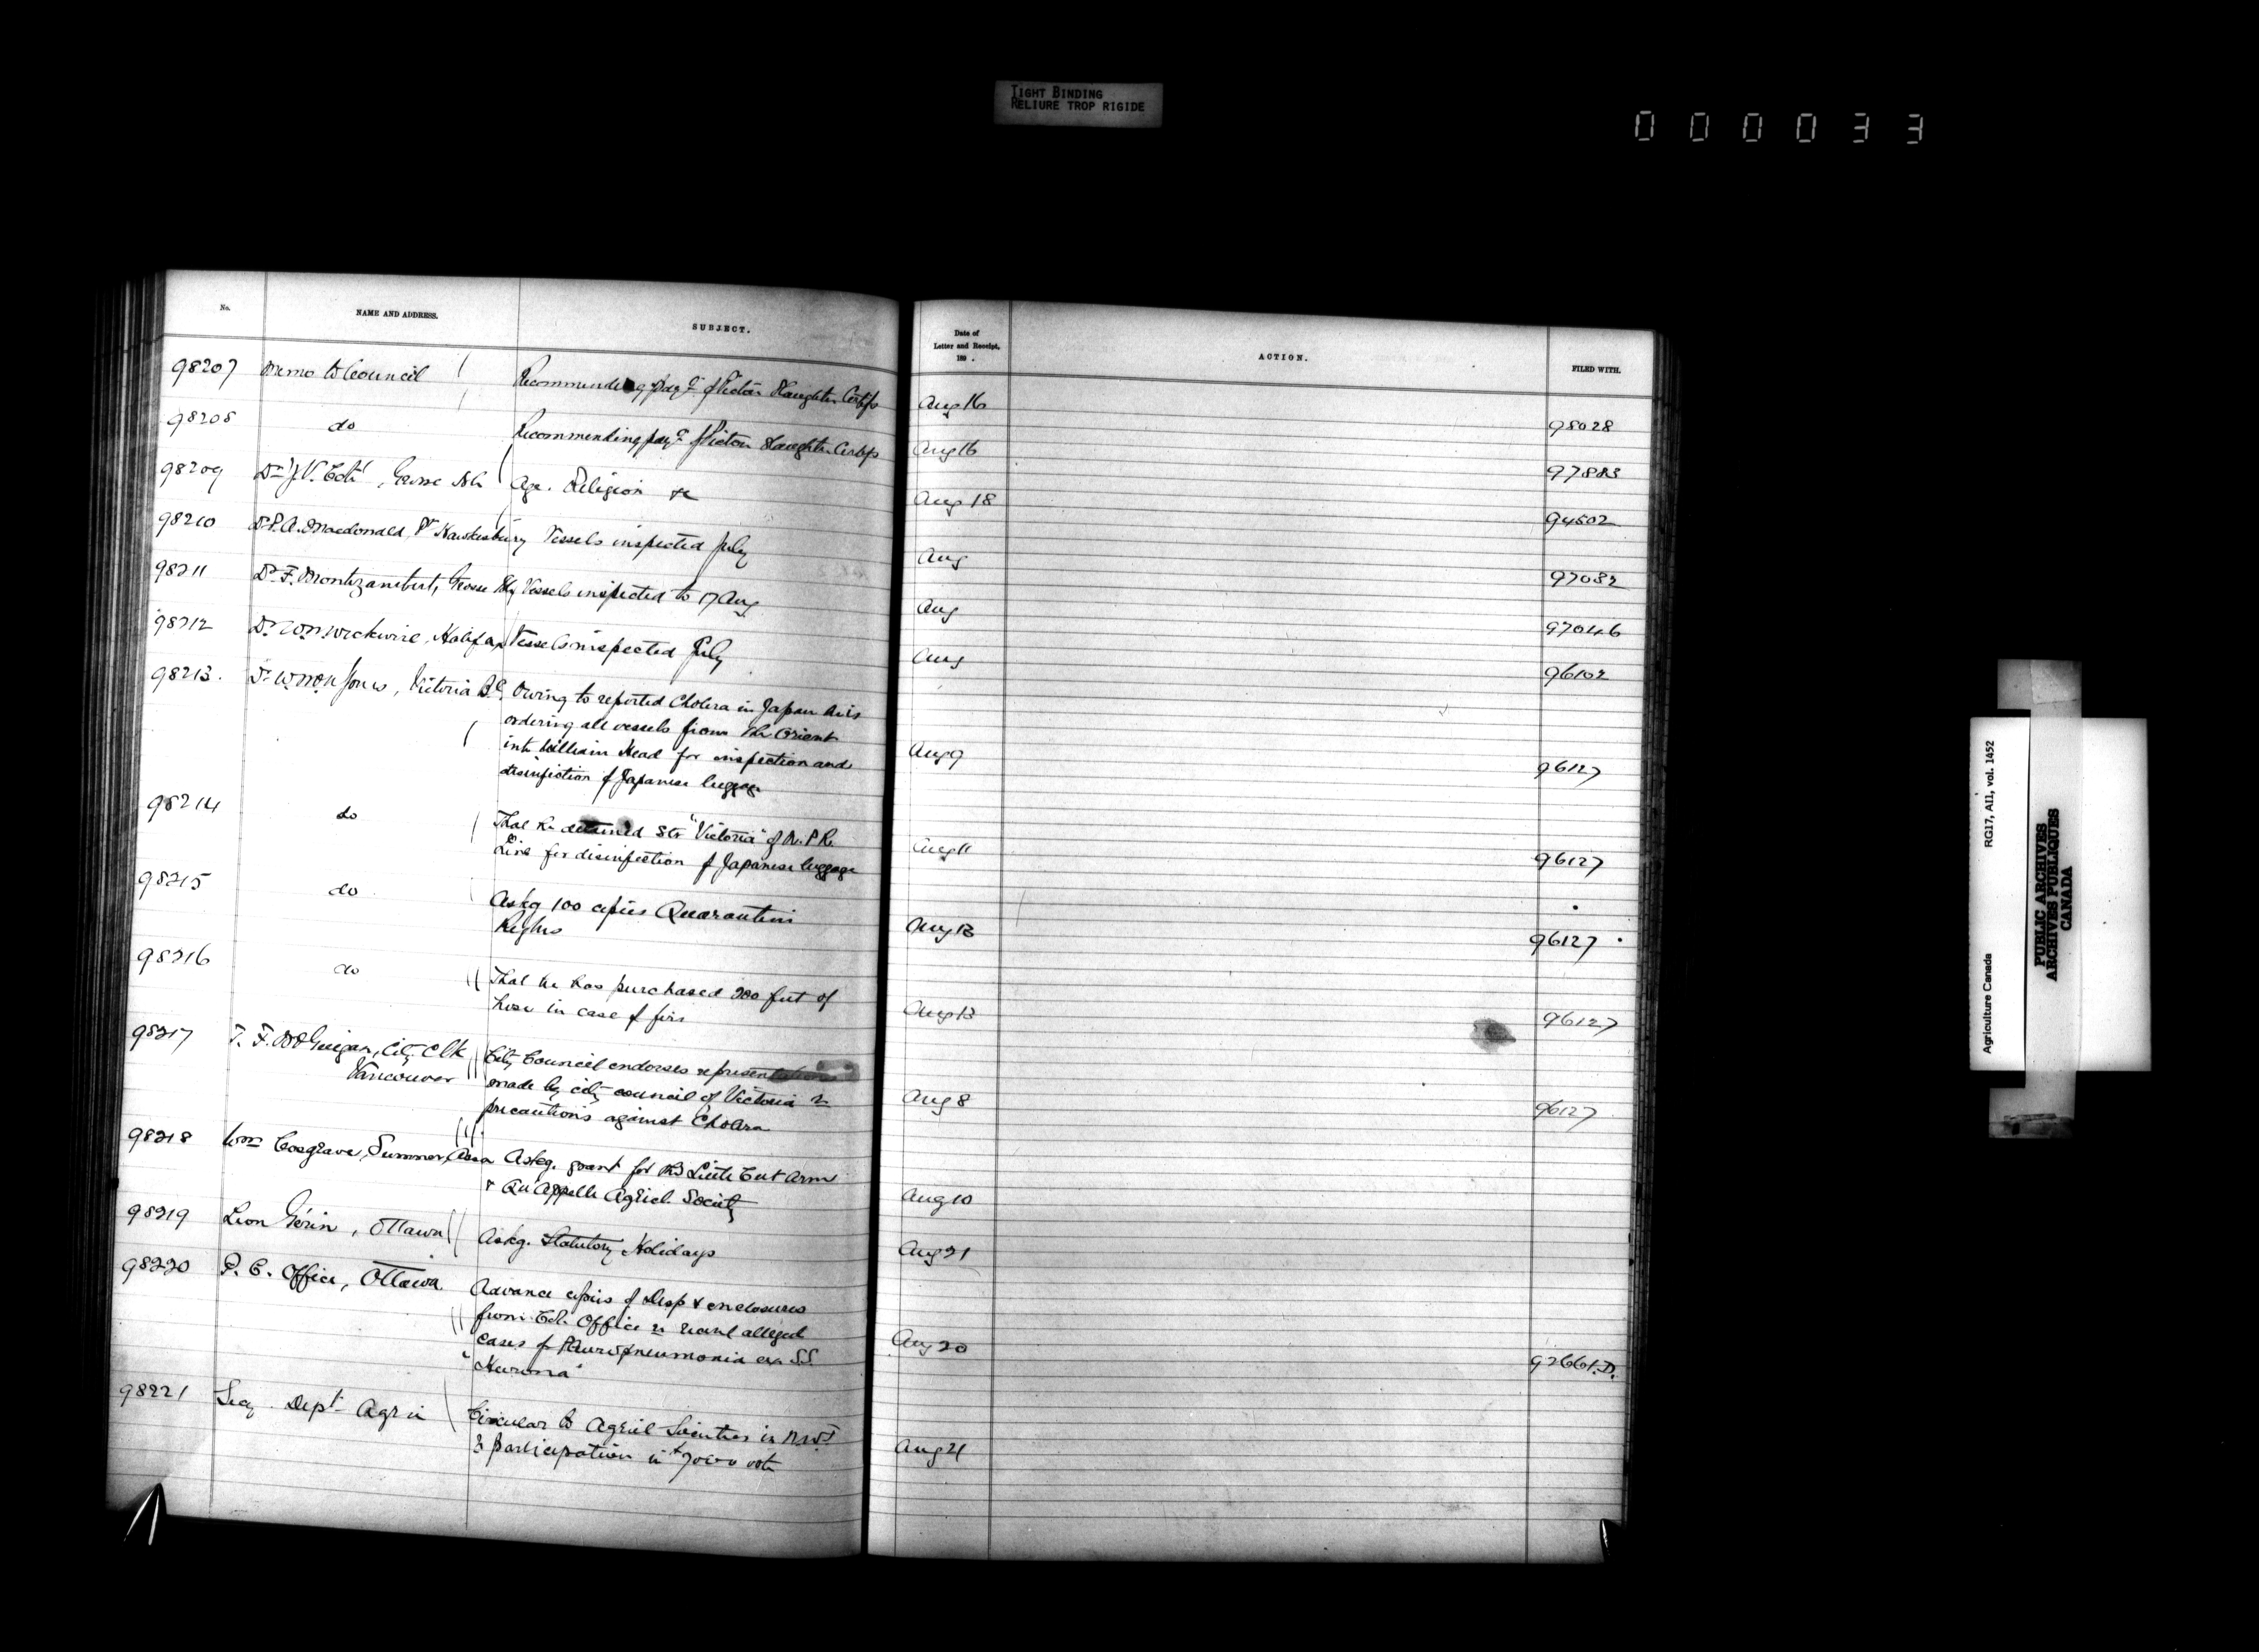 TIGHT BINDING
RELIURE TROP RIGIDE
000033
No. NAME AND ADDRESS. SUBJECT. Date of Letter and Receipt, 189 . ACTION. FILED WITH.
98207 Memo to Council Recommending paymt of Pictou Slaughter Certfs Aug 16 98028
98208 do Recommending paymt of Pictou Slaughter Certfs Aug 16 97883
98209 Dr J.V. Coté, Grosse Isle Age. Religion &c Aug 18 94502
98210 Dr P.A. Macdonald, Pt Hawkesbury Vessels inspected July Aug 97082
98211 Dr F. Montizambert, Grosse Isle Vessels inspected to 17 Aug Aug 97046
98212 Dr W.N. Wickwire, Halifax Vessels inspected July Aug 96102
98213. Dr W. Mc N Jones, Victoria B.C. Owing to reported Cholera in Japan he is
ordering all vessels from the Orient
into William Head for inspection and
disinfection of Japanese luggage Aug 9 96127
98214 do That he detained Str "Victoria" of N.P.R.
Line for disinfection of Japanese luggage Aug 11 96127
98215 do Askg 100 copies Quarantine
Regns Aug 13 96127
98216 do That he has purchased 200 feet of
hose in case of fire Aug 13 96127
98217 T. F. McGuigan, City Clk
Vancouver City Council endorses representations
made by city council of Victoria re
precautions against Cholera Aug 8 96127
98218 Wm Cosgrave, Sumner, Assa Askg. grant for the Little Cut Arm
& Qu'Appelle Agricl. Society Aug 10
98219 Leon Gérin, Ottawa Askg. Statutory Holidays Aug 21
98220 P. C. Office, Ottawa Advance copies of Desp & enclosures
from Col. Office re recent alleged
cases of Pleuro pneumonia ex S.S.
"Hurona" Aug 20 92661.D.
98221 Secy. Dept Agri Circular to Agricl Societies in N.W.T
re participation in \$7000 vote Aug 21
Agriculture Canada RG17, AII, vol. 1452
PUBLIC ARCHIVES
ARCHIVES PUBLIQUES
CANADA